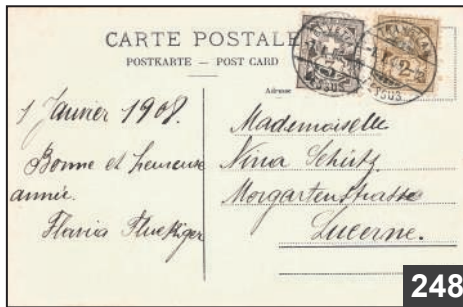 CARTE POSTALE
POSTKARTE — POST CARD
Adresse
1 Janvier 1908.
Bonne et heureuse
année.
Flavia Fluekiger
Mademoiselle
Nina Schütz
Morgartenstrasse
Lucerne.
248